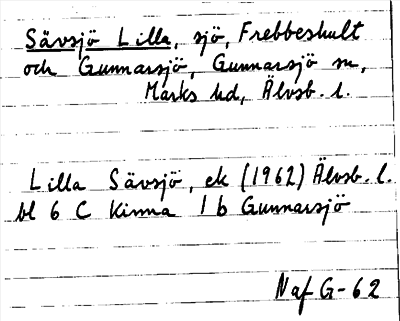 Sävsjö Lilla, sjö, Frebbeshult
och Gunnarsjö, Gunnarsjö sn,
Marks hd, Älvsb. l.
Lilla Sävsjö, ek (1962) Älvsb. l.
bl 6 C Kinna 1 b Gunnarsjö
Naf G-62